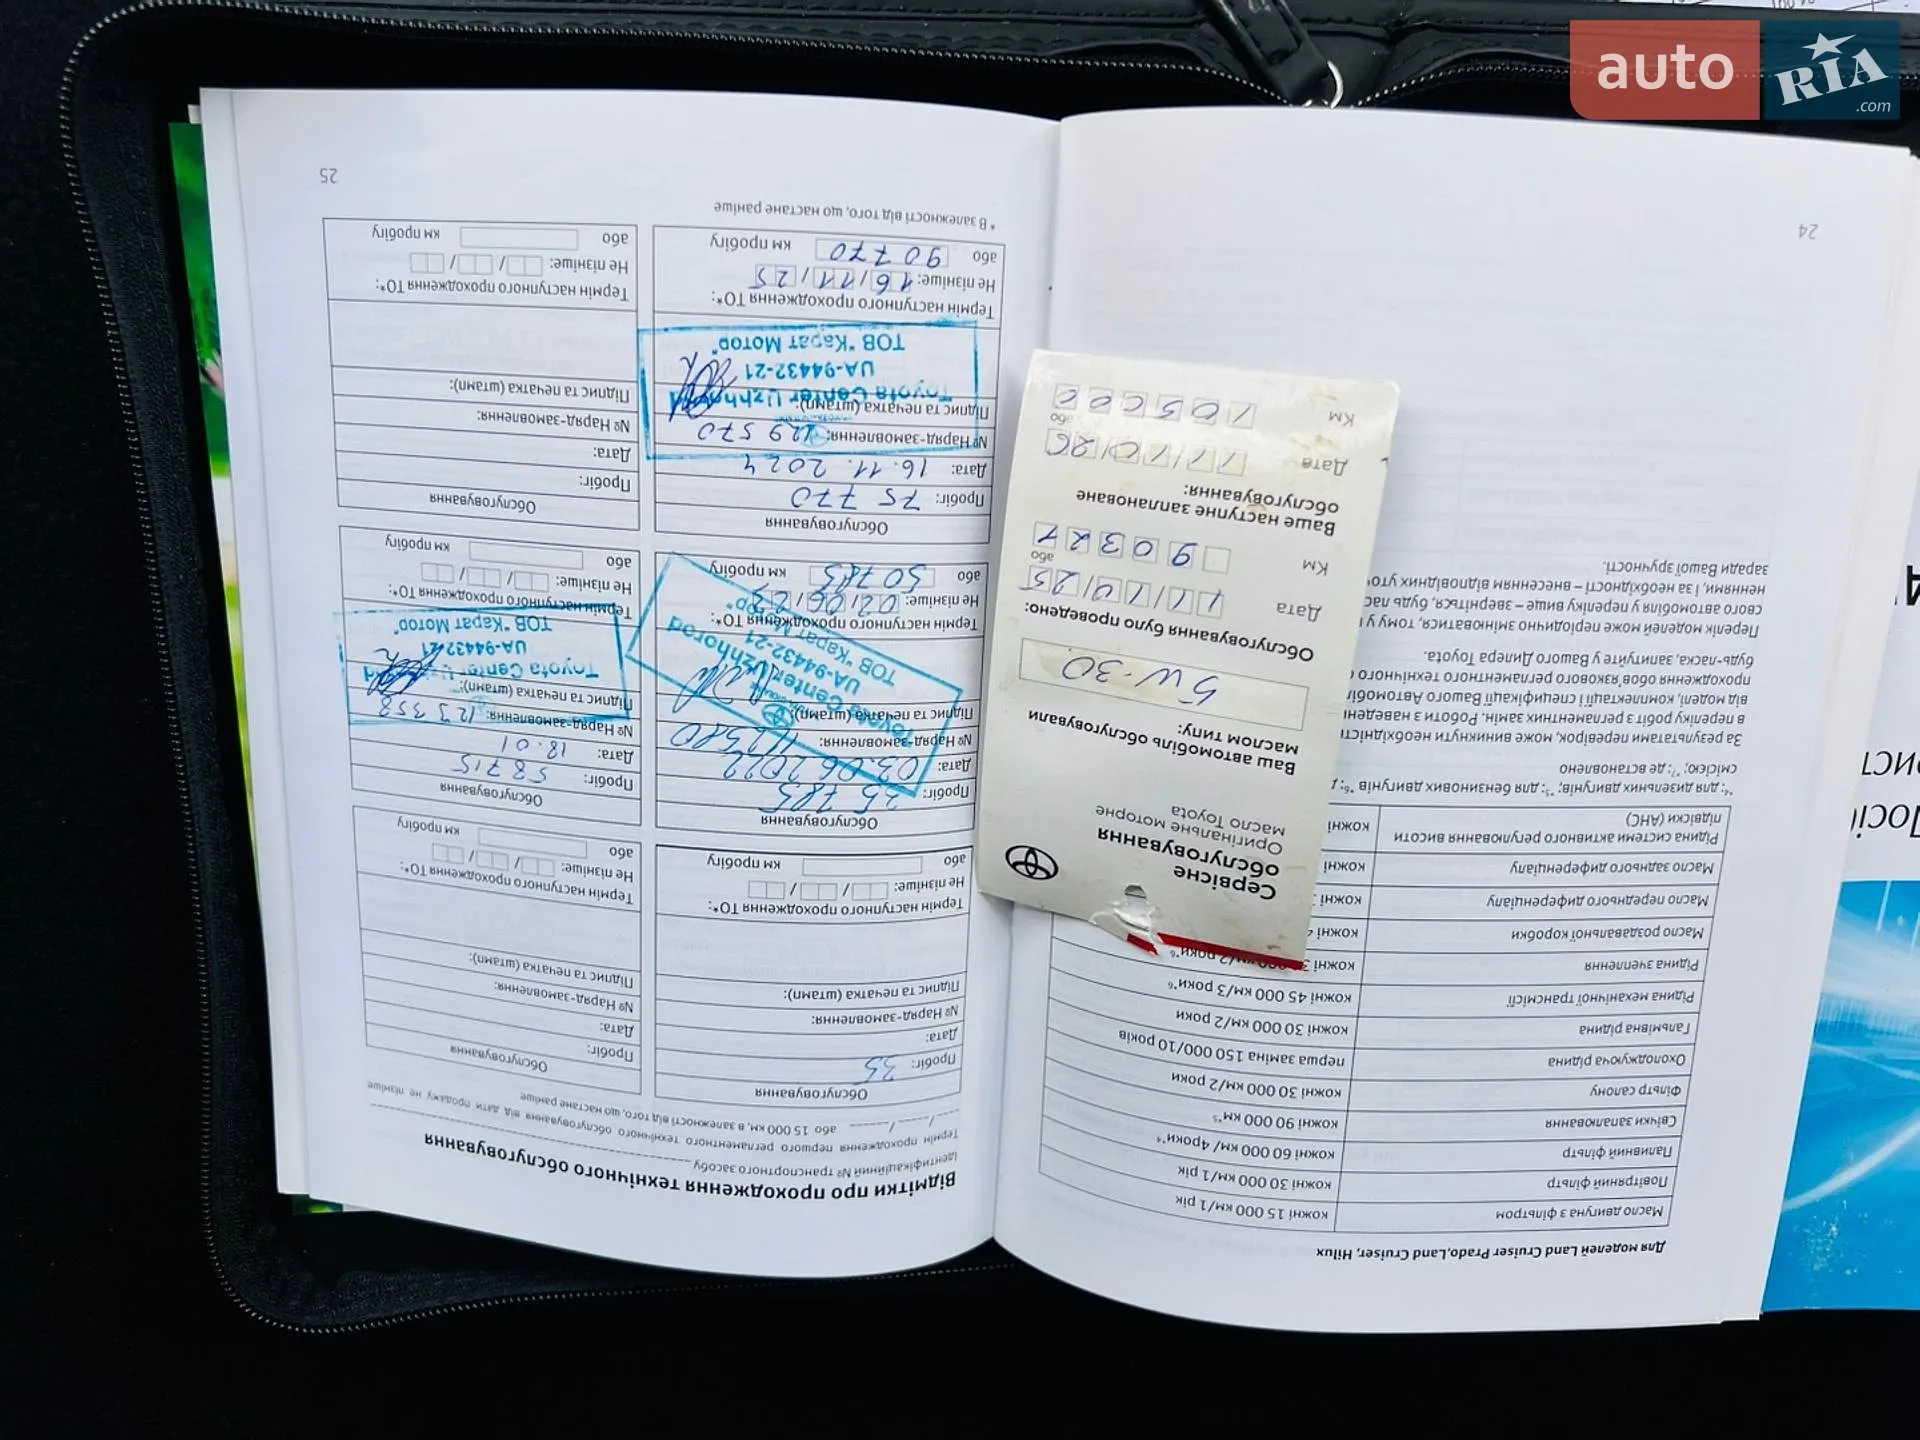 auto
RIA
.com
Відмітки про проходження технічного обслуговування
Ідентифікаційний № транспортного засобу
Термін проходження першого регламентного технічного обслуговування від дати продажу не пізніше
або 15 000 км, в залежності від того, що настане раніше
Обслуговування
Пробіг: 35
Дата:
№ Наряд-замовлення:
Підпис та печатка (штамп):
Термін наступного проходження ТО*:
Не пізніше: / /
або км пробігу
Обслуговування
Пробіг:
Дата:
№ Наряд-замовлення:
Підпис та печатка (штамп):
Термін наступного проходження ТО*:
Не пізніше: / /
або км пробігу
Обслуговування
Пробіг: 35 785
Дата: 03.06.2022
№ Наряд-замовлення:
Підпис та печатка (штамп):
Toyota Center Uzhhorod
UA-94432-21
ТОВ "Карат Мотор"
Термін наступного проходження ТО*:
Не пізніше: 02/06/23
або 50 785 км пробігу
Обслуговування
Пробіг: 58715
Дата: 18.01
№ Наряд-замовлення: 123 358
Підпис та печатка (штамп):
Toyota Center
UA-94432-21
ТОВ "Карат Мотор"
Термін наступного проходження ТО*:
Не пізніше: / /
або км пробігу
Обслуговування
Пробіг: 75 770
Дата: 16.11.2024
№ Наряд-замовлення: 129 570
Підпис та печатка (штамп):
Toyota Center Uzhhorod
UA-94432-21
ТОВ "Карат Мотор"
Термін наступного проходження ТО*:
Не пізніше: 16/11/25
або 90 770 км пробігу
Обслуговування
Пробіг:
Дата:
№ Наряд-замовлення:
Підпис та печатка (штамп):
Термін наступного проходження ТО*:
Не пізніше: / /
або км пробігу
* В залежності від того, що настане раніше
25
Для моделей Land Cruiser Prado, Land Cruiser, Hilux
Масло двигуна з фільтром кожні 15 000 км/1 рік
Повітряний фільтр кожні 30 000 км/1 рік
Паливний фільтр кожні 60 000 км/ 4роки*⁴
Свічки запалювання кожні 90 000 км*⁵
Фільтр салону кожні 30 000 км/2 роки
Охолоджуюча рідина перша заміна 150 000/10 років
Гальмівна рідина кожні 30 000 км/2 роки
Рідина механічної трансмісії кожні 45 000 км/3 роки*⁶
Рідина зчеплення кожні
Масло роздавальної коробки кожні
Масло переднього диференціалу кожні
Масло заднього диференціалу кожні
Рідина системи активного регулювання висоти
підвіски (AHC) кожні
*⁴: для дизельних двигунів; *⁵: для бензинових двигунів *⁶:
смісією; *⁷: де встановлено
За результатами перевірок, може виникнути необхідність
в переліку робіт з регламентних замін. Роботи з наведен
від моделі, комплектації і специфікації Вашого Автомобі
проходження обов'язкового регламентного технічного
будь-ласка, запитуйте у Вашого Дилера Toyota.
Перелік моделей може періодично змінюватися, тому у
свого автомобіля у переліку вище – зверніться, будь лас
неннями, і за необхідності – внесенням відповідних уточ
заради Вашої зручності.
24
Сервісне
обслуговування
Оригінальне моторне
масло Toyota
Ваш автомобіль обслуговували
маслом типу:
5W-30
Обслуговування було проведено:
Дата 11/10/25
або
Км 90327
Ваше наступне заплановане
обслуговування:
Дата 11/10/26
або
Км 105000